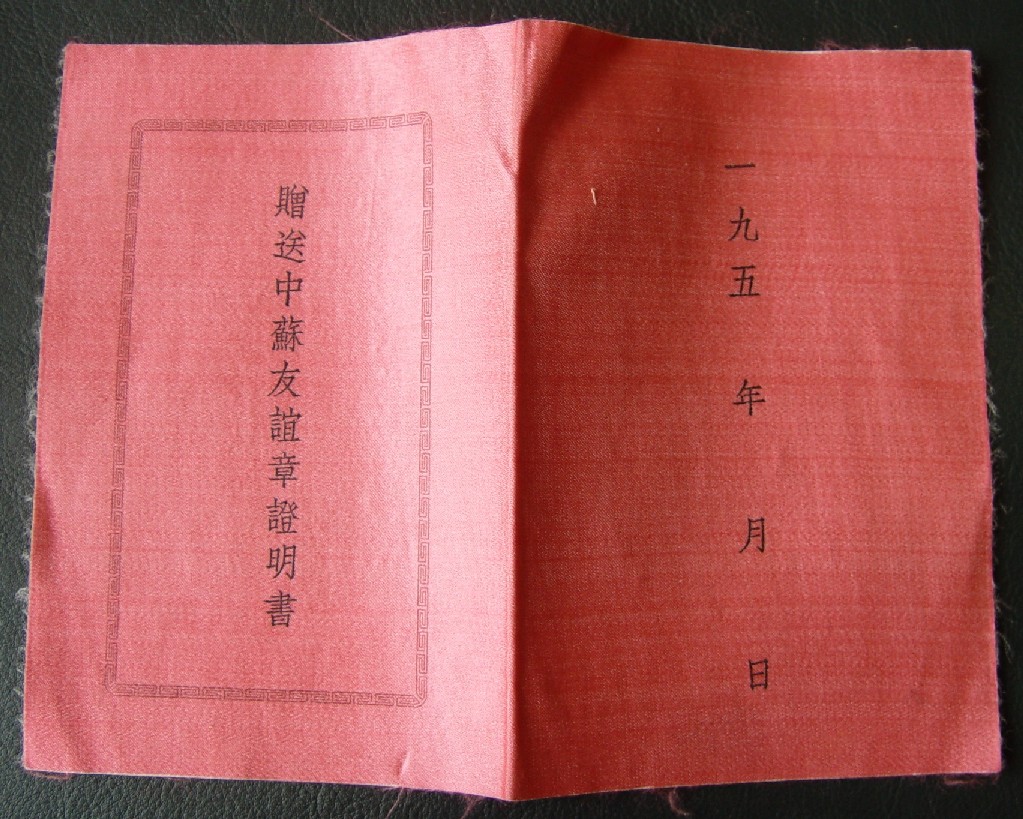 贈送中蘇友誼章證明書
一九五 年 月 日